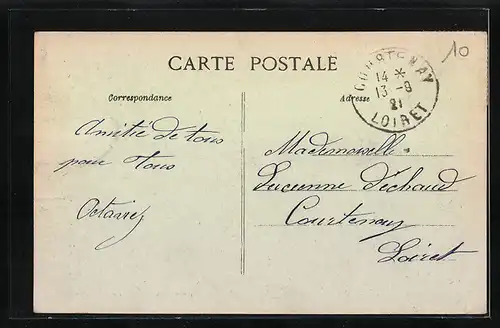 10
CARTE POSTALE
COURTENAY
14 *
13 - 8
21
LOIRET
Correspondance
Adresse
Amitié de tous
pour Tous
Octavie
Mademoiselle
Lucienne Déchaud
Courtenay
Loiret